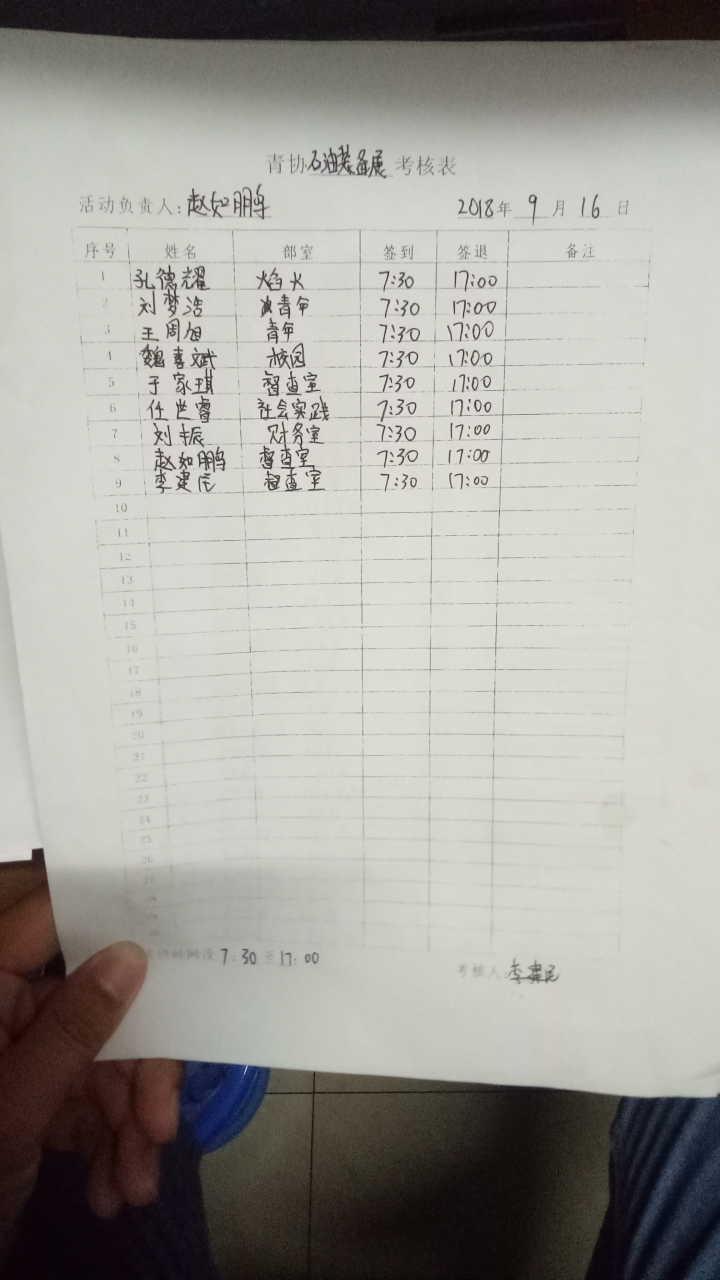 青协石油装备展考核表
活动负责人:赵知鹏 2018年 9 月 16 日
序号 姓名 部室 签到 签退 备注
1 孔德耀 焰火 7:30 17:00
2 刘梦浩 青年 7:30 17:00
3 王周旭 青年 7:30 17:00
4 魏喜斌 校园 7:30 17:00
5 于家琪 督查室 7:30 17:00
6 任世睿 社会实践 7:30 17:00
7 刘振 财务室 7:30 17:00
8 赵知鹏 督查室 7:30 17:00
9 李建辰 督查室 7:30 17:00
10
11
12
13
14
15
16
17
18
19
20
21
22
23
24
25
26
7:30至17:00 考核人